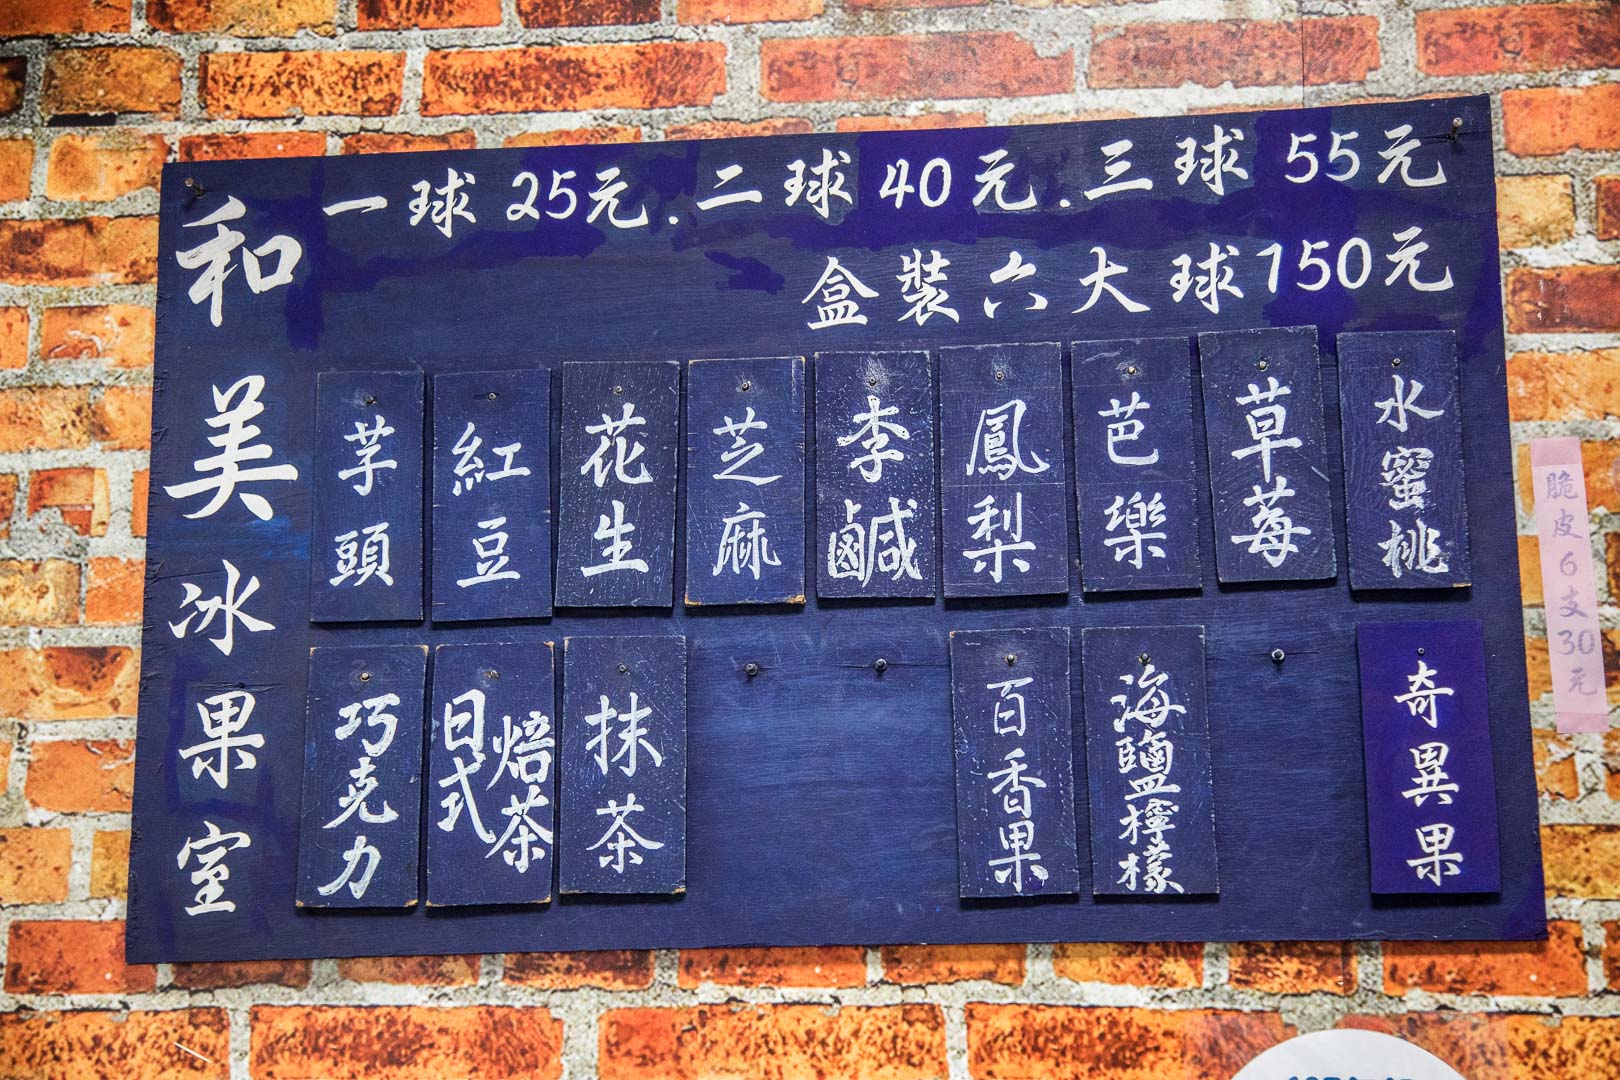 和美冰果室
一球25元.二球40元.三球55元
盒裝六大球150元
芋頭
紅豆
花生
芝麻
李鹹
鳳梨
芭樂
草莓
水蜜桃
巧克力
日式
焙茶
抹茶
百香果
海鹽檸檬
奇異果
脆皮6支30元